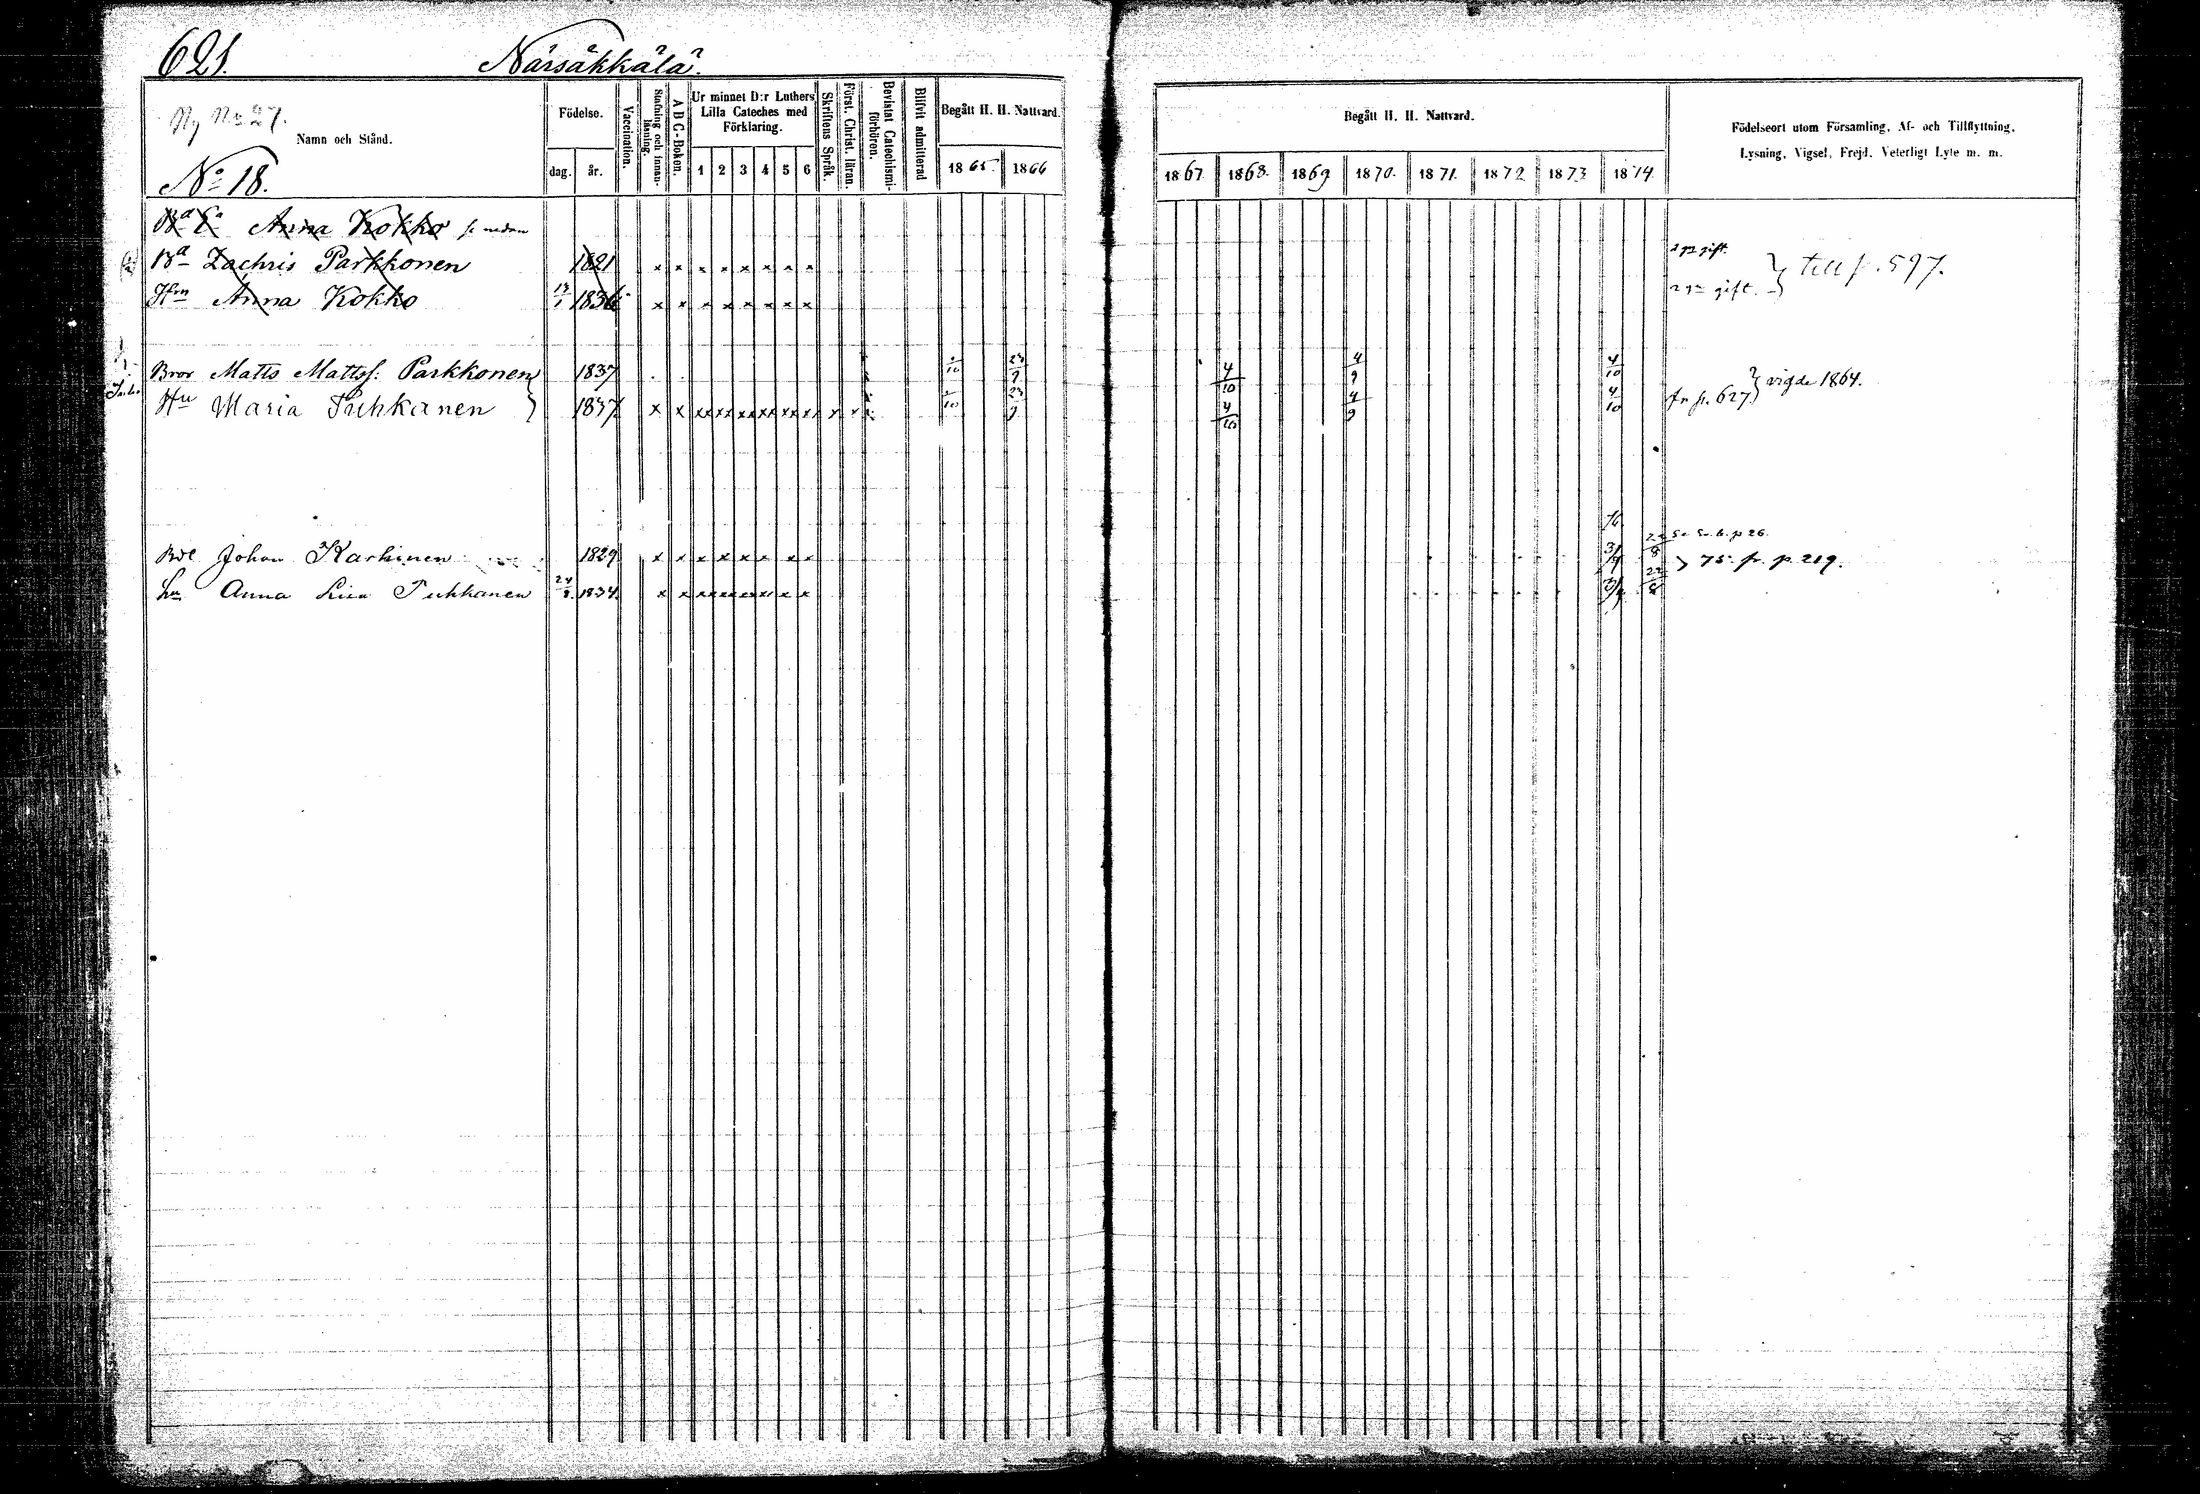 621.
Närsäkkälä.
Ny No 27.
Namn och Stånd.
No 18.
Födelse.
dag. år.
Vaccination.
Stafning och innanläsning.
A B C-Boken.
Ur minnet D:r Luthers
Lilla Cateches med
Förklaring.
1 2 3 4 5 6
Skriftens Språk.
Först. Christ. läran.
Bevistat Catechismiförhören.
Blifvit admitterad
Begått H. H. Nattvard.
1865. 1866
Begått H. H. Nattvard.
1867. 1868. 1869 1870. 1871. 1872 1873 1874.
Födelseort utom Församling, Af- och Tillflyttning,
Lysning, Vigsel, Frejd, Veterligt Lyte m. m.
Anna Kokko se nedan
Bd Zachris Parkkonen 1821 x x x x x x x x 2 gn gift.
} till p. 597.
Hrn Anna Kokko 13/1 1836 x x x x x x x x 2 gn gift.
Bror Matts Mattss: Parkkonen 1837 /10 23/9 4/10 4/9 4/10
} vigde 1864.
Hu Maria Puhkanen } 1837 x x xx xx xx xx xx xx x x /10 23/9 4/10 4/9 4/10 fr p. 627
Johan Karhinen 1829 x x x x x x x x 22/8
} 75. fr. p. 219.
Anna Lisa Puhkanen 24/8. 1834. x x 22/8